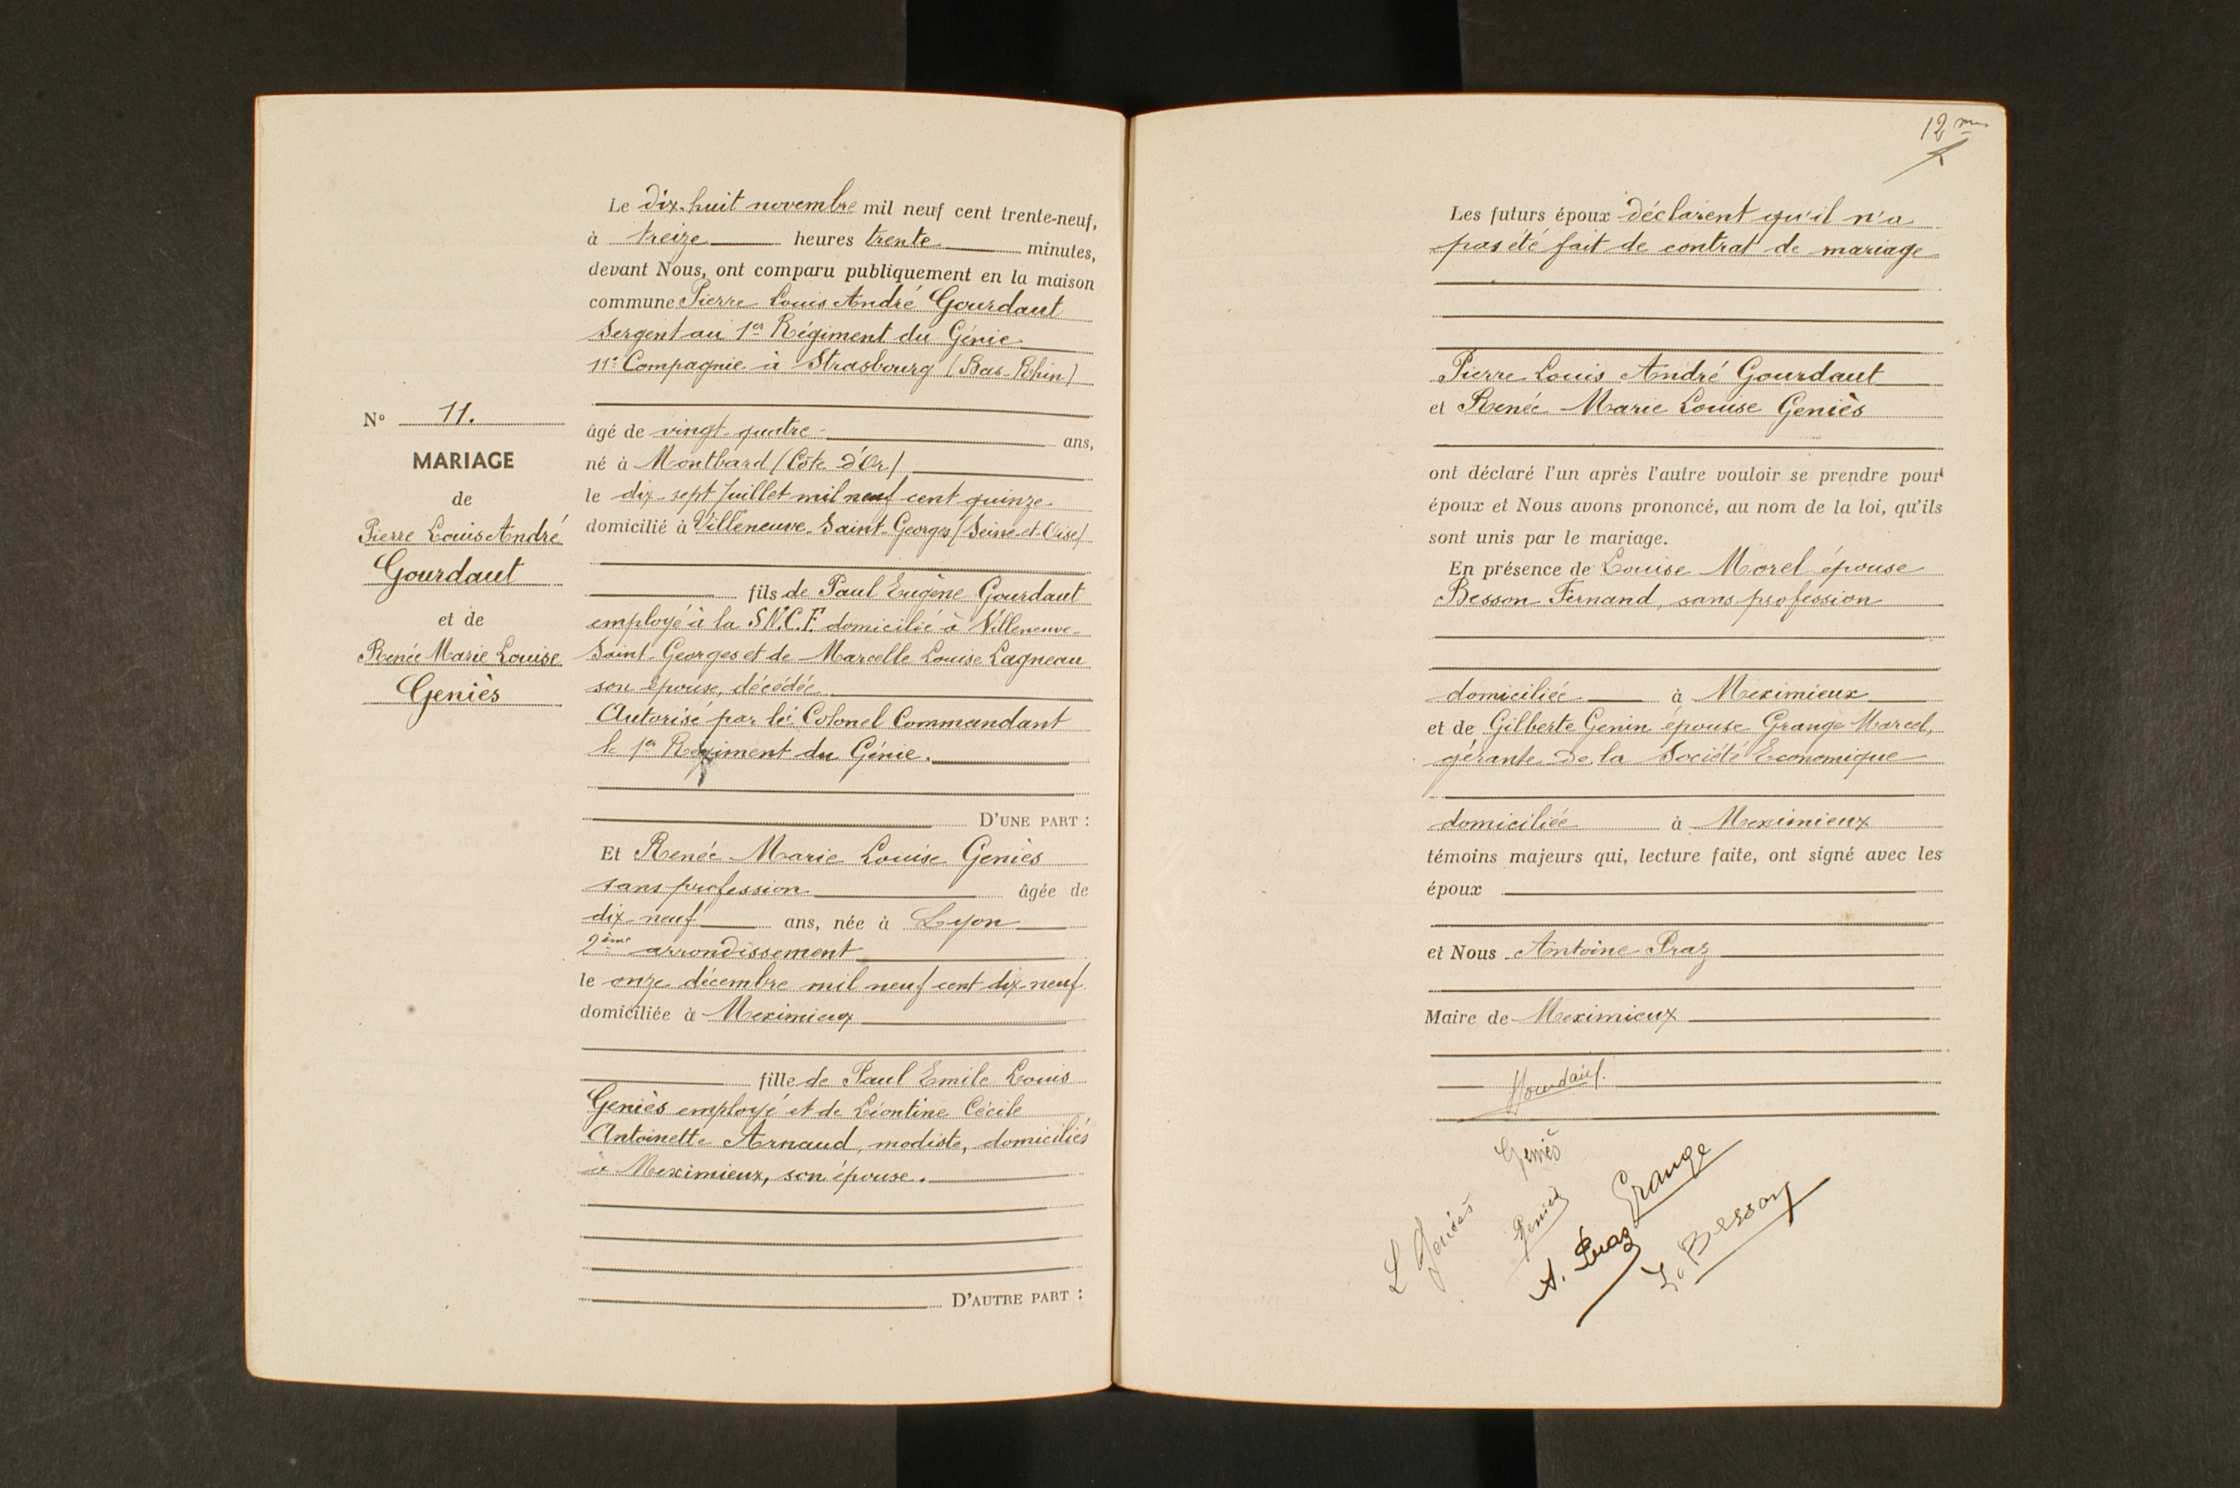 Le dix-huit novembre mil neuf cent trente-neuf,
à treize heures trente minutes,
devant Nous, ont comparu publiquement en la maison
commune Pierre Louis André Gourdaut
Sergent au 1er Régiment du Génie
11e Compagnie à Strasbourg (Bas-Rhin)
âgé de vingt-quatre ans,
né à Montbard (Côte d'Or)
le dix-sept Juillet mil neuf cent quinze
domicilié à Villeneuve-Saint-Georges (Seine-et-Oise)
fils de Paul Eugène Gourdaut
employé à la S.N.C.F. domicilié à Villeneuve-
Saint-Georges et de Marcelle Louise Lagneau
son épouse, décédée
Autorisé par le Colonel Commandant
le 1er Régiment du Génie.
D'UNE PART :
Et Renée Marie Louise Geniès
sans profession âgée de
dix-neuf ans, née à Lyon
2ème arrondissement
le onze décembre mil neuf cent dix-neuf
domiciliée à Meximieux
fille de Paul Emile Louis
Geniès employé et de Léontine Cécile
Antoinette Arnaud, modiste, domiciliés
à Meximieux, son épouse.
D'AUTRE PART :
N° 11.
MARIAGE
de
Pierre Louis André
Gourdaut
et de
Renée Marie Louise
Geniès
12
Les futurs époux déclarent qu'il n'a
pas été fait de contrat de mariage
Pierre Louis André Gourdaut
et Renée Marie Louise Geniès
ont déclaré l'un après l'autre vouloir se prendre pour
époux et Nous avons prononcé, au nom de la loi, qu'ils
sont unis par le mariage.
En présence de Louise Morel épouse
Besson Fernand, sans profession
domiciliée à Meximieux
et de Gilberte Genin épouse Grange Marcel,
gérante de la Société Economique
domiciliée à Meximieux
témoins majeurs qui, lecture faite, ont signé avec les
époux
et Nous Antoine Praz
Maire de Meximieux
Gourdaut
Geniès
L Geniès
Geniès
Grange
A. Praz
L. Besson